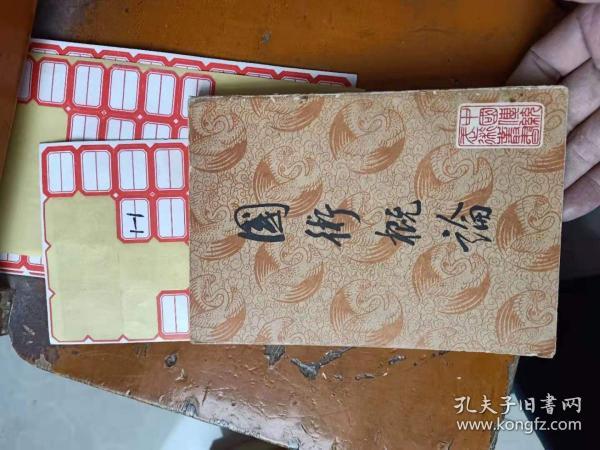 中國傳統
武術叢書
國術概論
1-1
孔夫子旧书网
www.kongfz.com